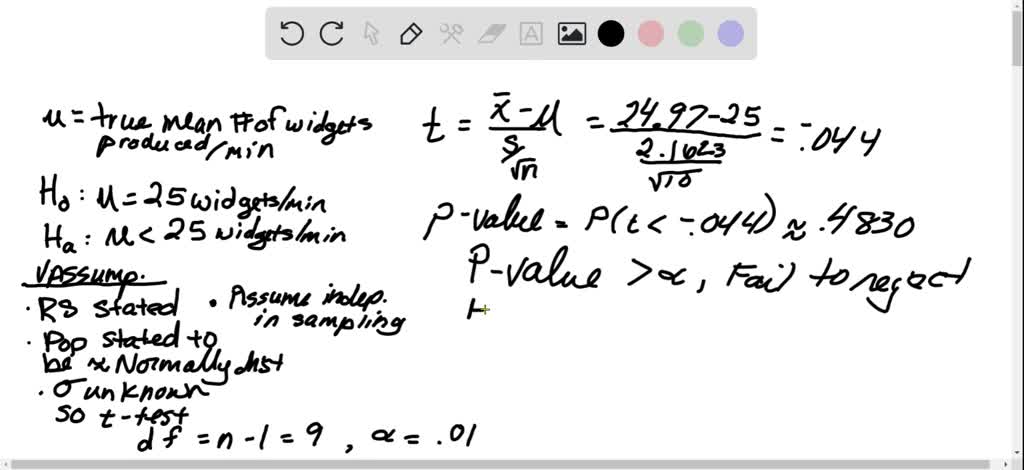 μ = true mean # of widgets
produced/min
H₀ : μ = 25 widgets/min
Hₐ : μ < 25 widgets/min
√Assump.
· RS stated
• Assume indep.
in sampling
· Pop stated to
be ≈ Normally dist
· σ unknown
so t-test
df = n - 1 = 9 , α = .01
t = (x̄ - μ)/(s/√n) = (24.97-25)/(2.1623/√10) = -.044
P-value = P(t < -.044) ≈ .4830
P-value > α, Fail to regect
H